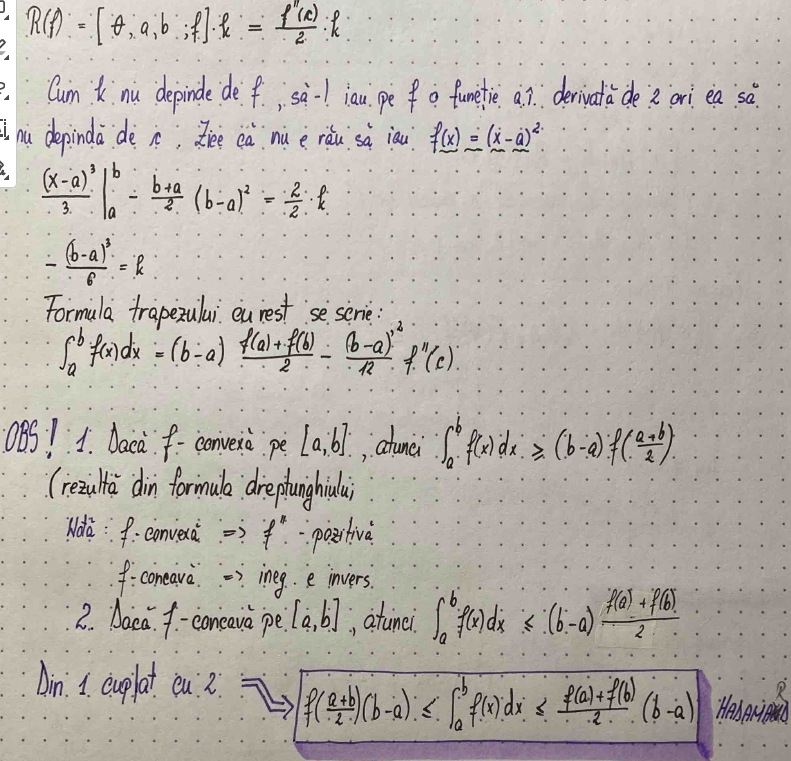 R(f) = [θ, a, b ; f]·k = f''(c)/2 · k
Cum k nu depinde de f, să-l iau pe f o funcție a.î. derivată de 2 ori ea să
nu depindă de c. Zice că nu e rău să iau f(x) = (x-a)².
(x-a)³/3 |_a^b - (b+a)/2 (b-a)² = 2/2 · k
- (b-a)³/6 = k
Formula trapezului cu rest se scrie:
∫_a^b f(x)dx = (b-a) (f(a)+f(b))/2 - (b-a)²/12 f''(c)
OBS! 1. Dacă f - convexă pe [a,b], atunci ∫_a^b f(x)dx ≥ (b-a) f((a+b)/2)
(rezultă din formula dreptunghiului
Notă: f-convexă => f'' - pozitivă
f-concavă => ineg. e invers.
2. Dacă f-concavă pe [a,b], atunci ∫_a^b f(x)dx ≤ (b-a) (f(a)+f(b))/2
Din 1 cuplat cu 2 => f((a+b)/2)(b-a) ≤ ∫_a^b f(x)dx ≤ (f(a)+f(b))/2 (b-a)